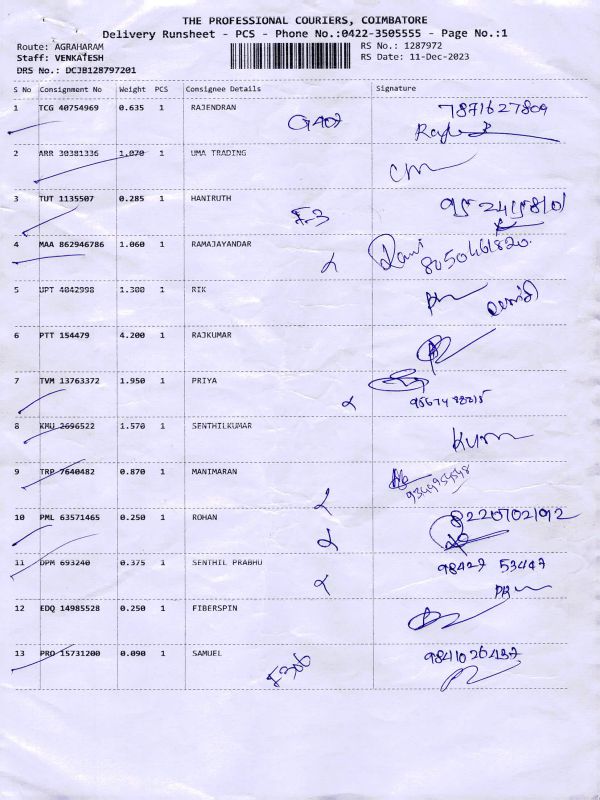 THE PROFESSIONAL COURIERS, COIMBATORE
Delivery Runsheet - PCS - Phone No.:0422-3505555 - Page No.:1
Route: AGRAHARAM
RS No.: 1287972
Staff: VENKATESH
RS Date: 11-Dec-2023
DRS No.: DCJB128797201
S No Consignment No Weight PCS Consignee Details Signature
1 TCG 40754969 0.635 1 RAJENDRAN 7871627809
2 ARR 30381336 1.070 1 UMA TRADING
3 TUT 1135507 0.285 1 HANIRUTH
F-3
4 MAA 862946786 1.060 1 RAMAJAYANDAR Rami
5 UPT 4042998 1.300 1 RIK
6 PTT 154479 4.200 1 RAJKUMAR
7 TVM 13763372 1.950 1 PRIYA
8 KMU 2696522 1.570 1 SENTHILKUMAR
Kum
9 TRP 7640482 0.870 1 MANIMARAN
10 PML 63571465 0.250 1 ROHAN 8220702192
11 DPM 693240 0.375 1 SENTHIL PRABHU 98427 53447
12 EDQ 14985528 0.250 1 FIBERSPIN
13 PRO 15731200 0.090 1 SAMUEL 9841026437
F306